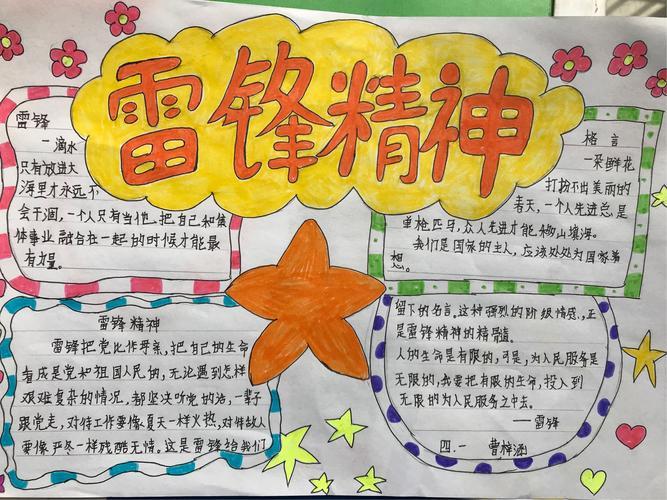 雷锋精神
雷锋
一滴水
只有放进大
海里才永远不
会干涸,一个人只有当他把自己和集
体事业融合在一起的时候才能最
有力量。
格言
一朵鲜花
打扮不出美丽的
春天,一个人先进总是
单枪匹马,众人先进才能移山填海。
我们是国家的主人,应该处处为国家着
想。
雷锋精神
雷锋把党比作母亲,把自己的生命
看成是党和祖国人民的,无论遇到怎样
艰难复杂的情况,都坚决听党的话,一辈子
跟党走,对待工作要像夏天一样火热,对待敌人
要像严冬一样残酷无情。这是雷锋给我们
留下的名言。这种强烈的阶级情感,正
是雷锋精神的精髓。
人的生命是有限的,可是,为人民服务是
无限的,我要把有限的生命,投入到
无限的为人民服务之中去。
—雷锋
四.一 曹梓涵